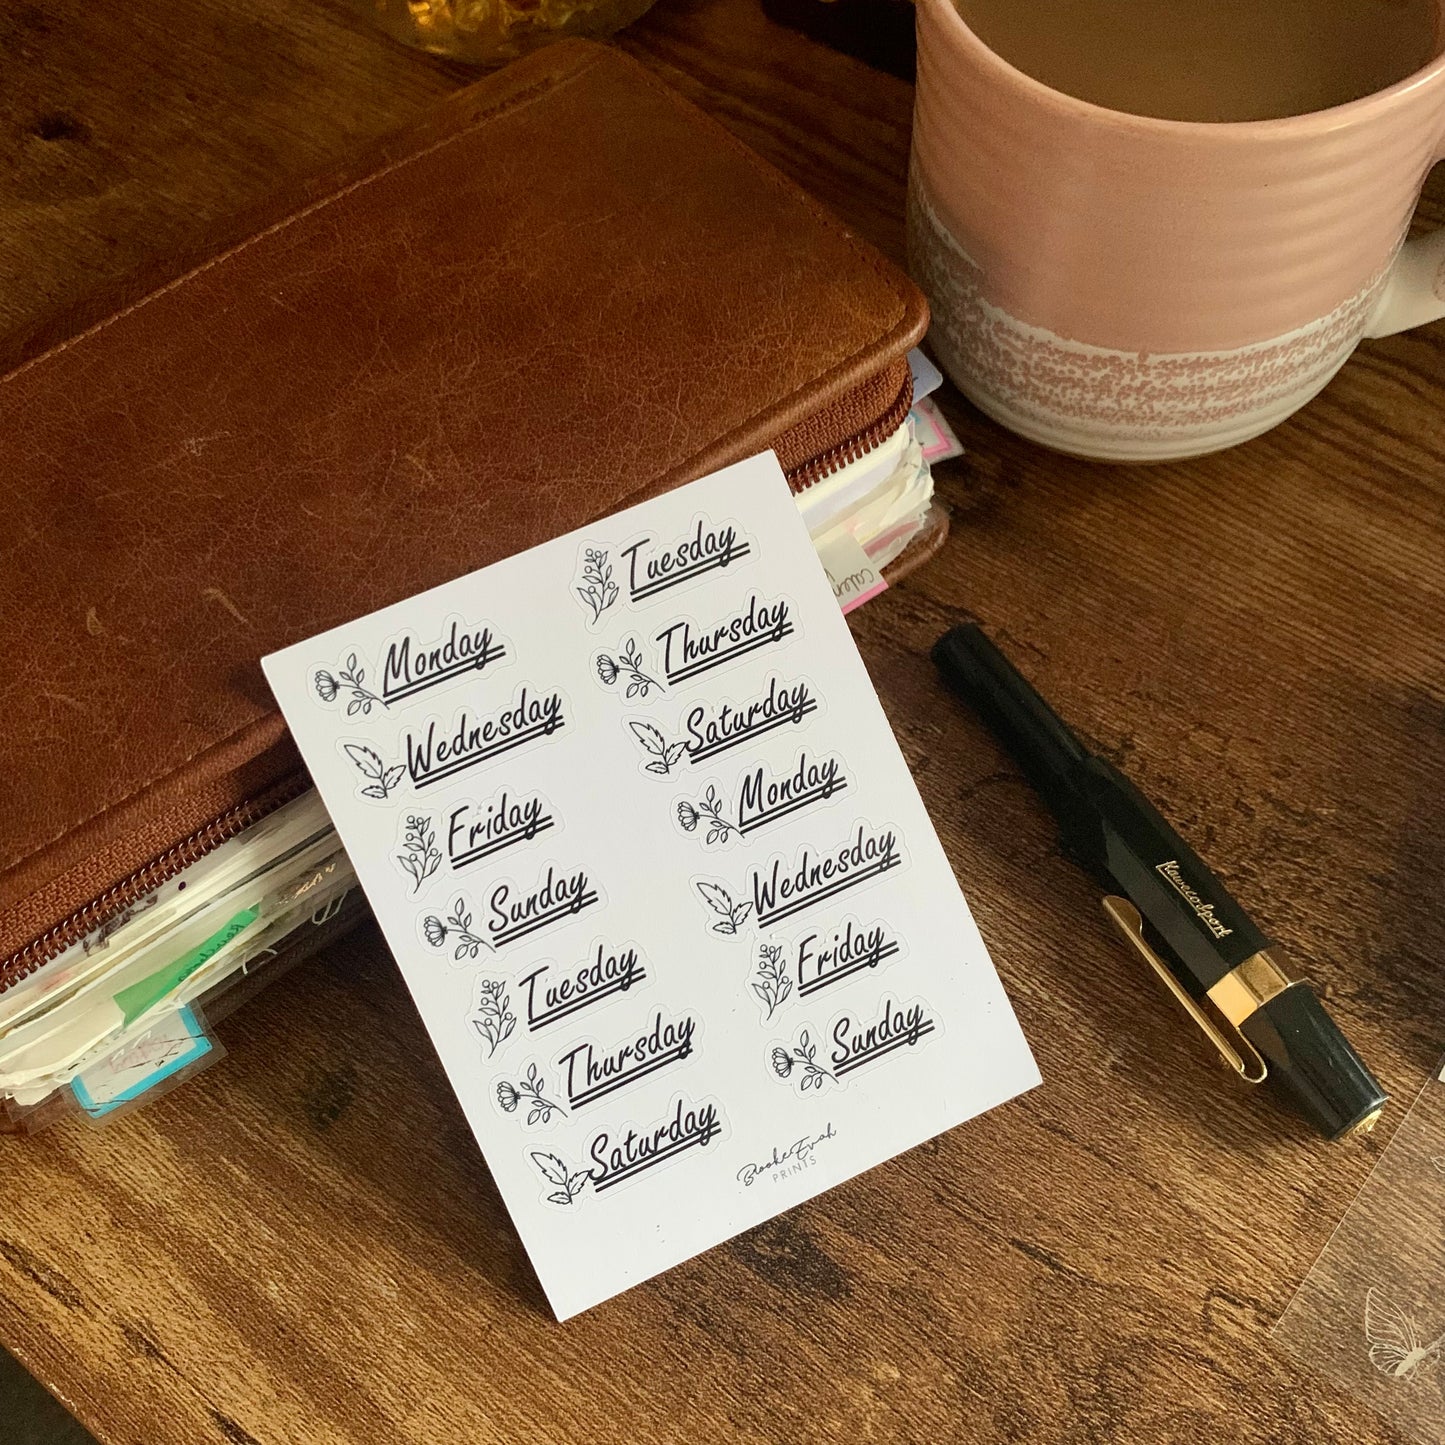 Monday
Wednesday
Friday
Sunday
Tuesday
Thursday
Saturday
Tuesday
Thursday
Saturday
Monday
Wednesday
Friday
Sunday
BrookeEvah
PRINTS
Kaweco Sport